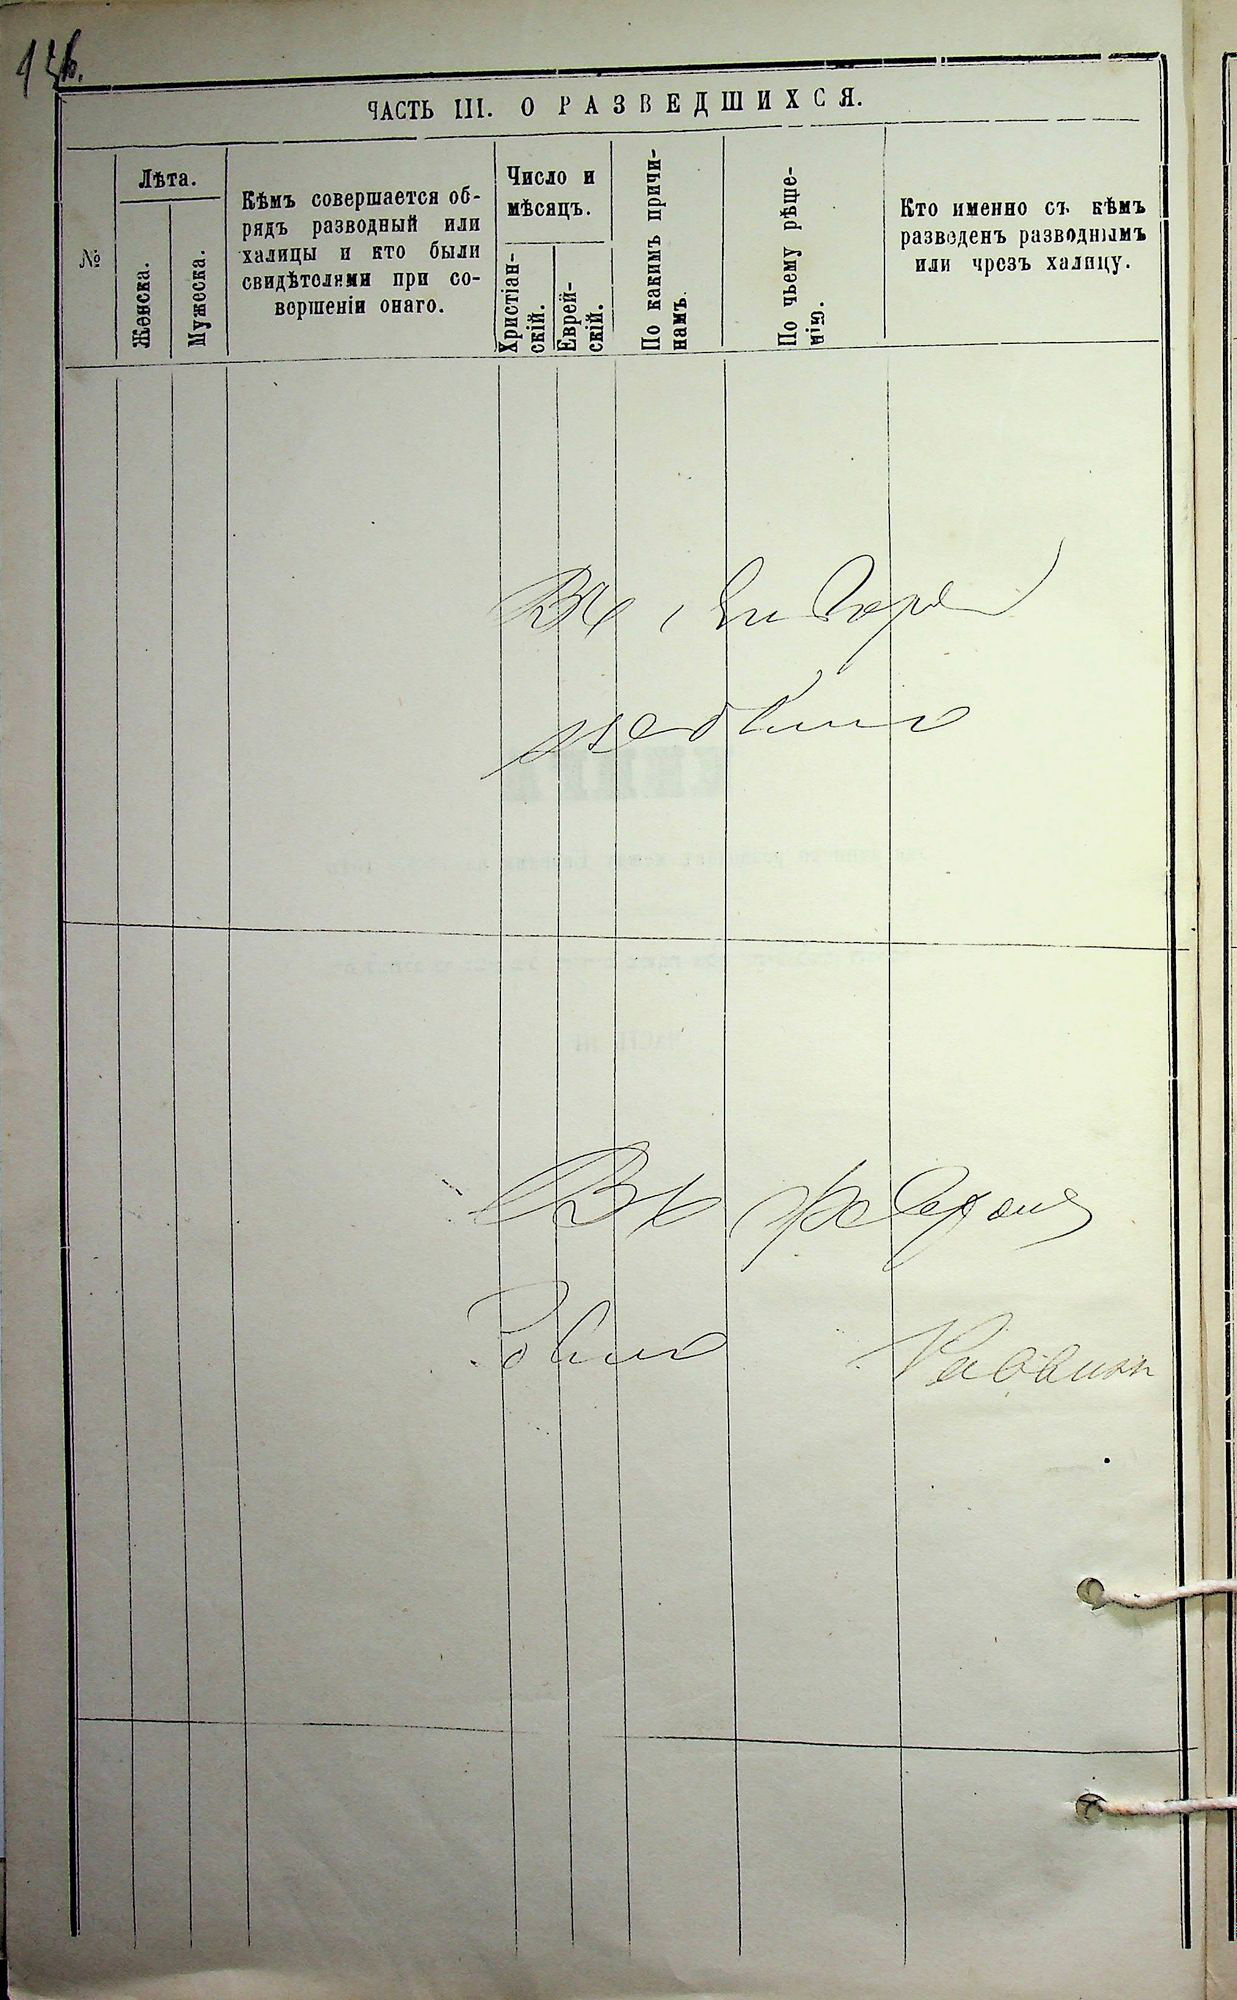 ЧАСТЬ III. О РАЗВЕДШИХСЯ.
№
Лѣта.
Женска.
Мужеска.
Кѣмъ совершается об-
рядъ разводный или
халицы и кто были
свидѣтелями при со-
вершеніи онаго.
Число и
мѣсяцъ.
Христіан-
скій.
Еврей-
скій.
По какимъ причи-
намъ.
По чьему рѣше-
нію.
Кто именно съ кѣмъ
разведенъ разводнымъ
или чрезъ халицу.
Въ Январѣ
не было
Въ
было Раввинъ